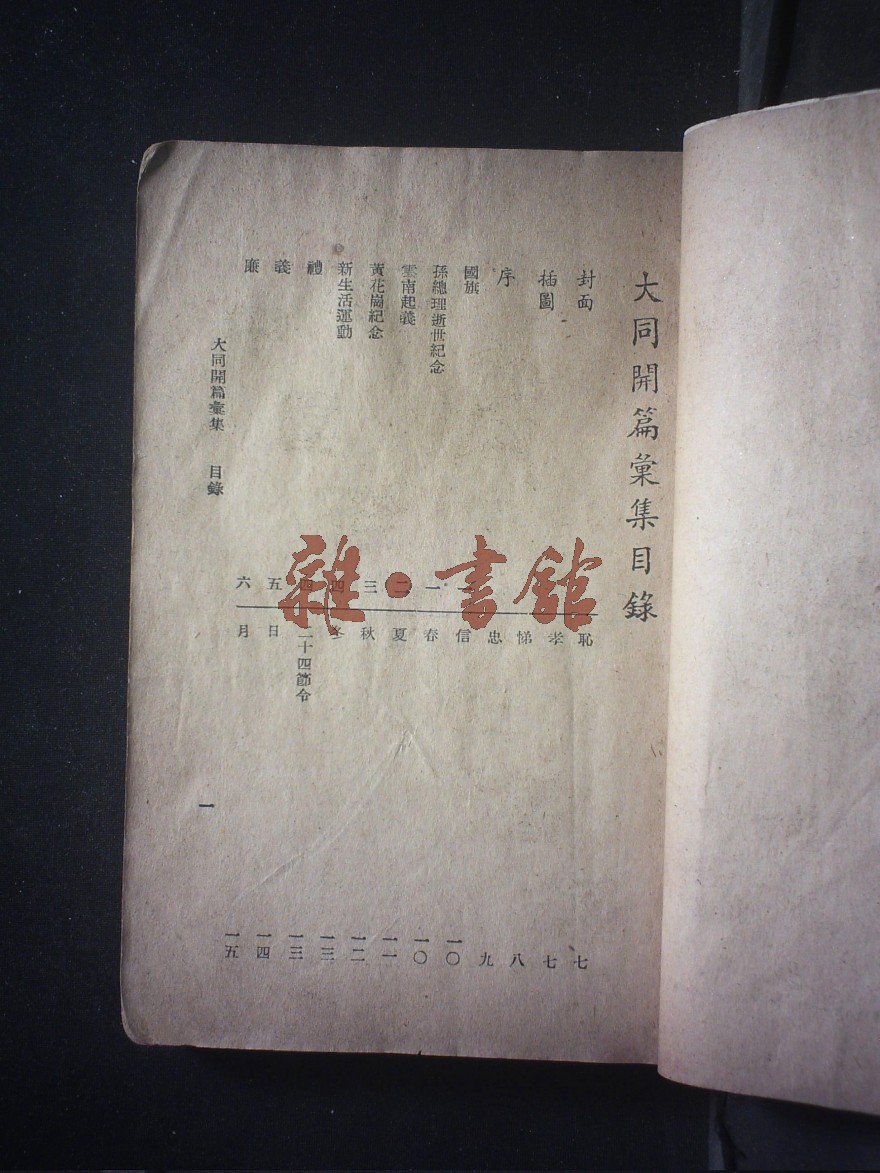 大同開篇彙集目錄
封面
插圖
序
國旗
孫總理逝世紀念 一
雲南起義 二
黃花崗紀念 三
新生活運動 四
禮 四
義 五
廉 六
恥 七
孝 七
悌 八
忠 九
信 一〇
春 一〇
夏 一一
秋 一二
冬 一三
二十四節令 一三
日 一四
月 一五
大同開篇彙集 目錄 一
雜·書館